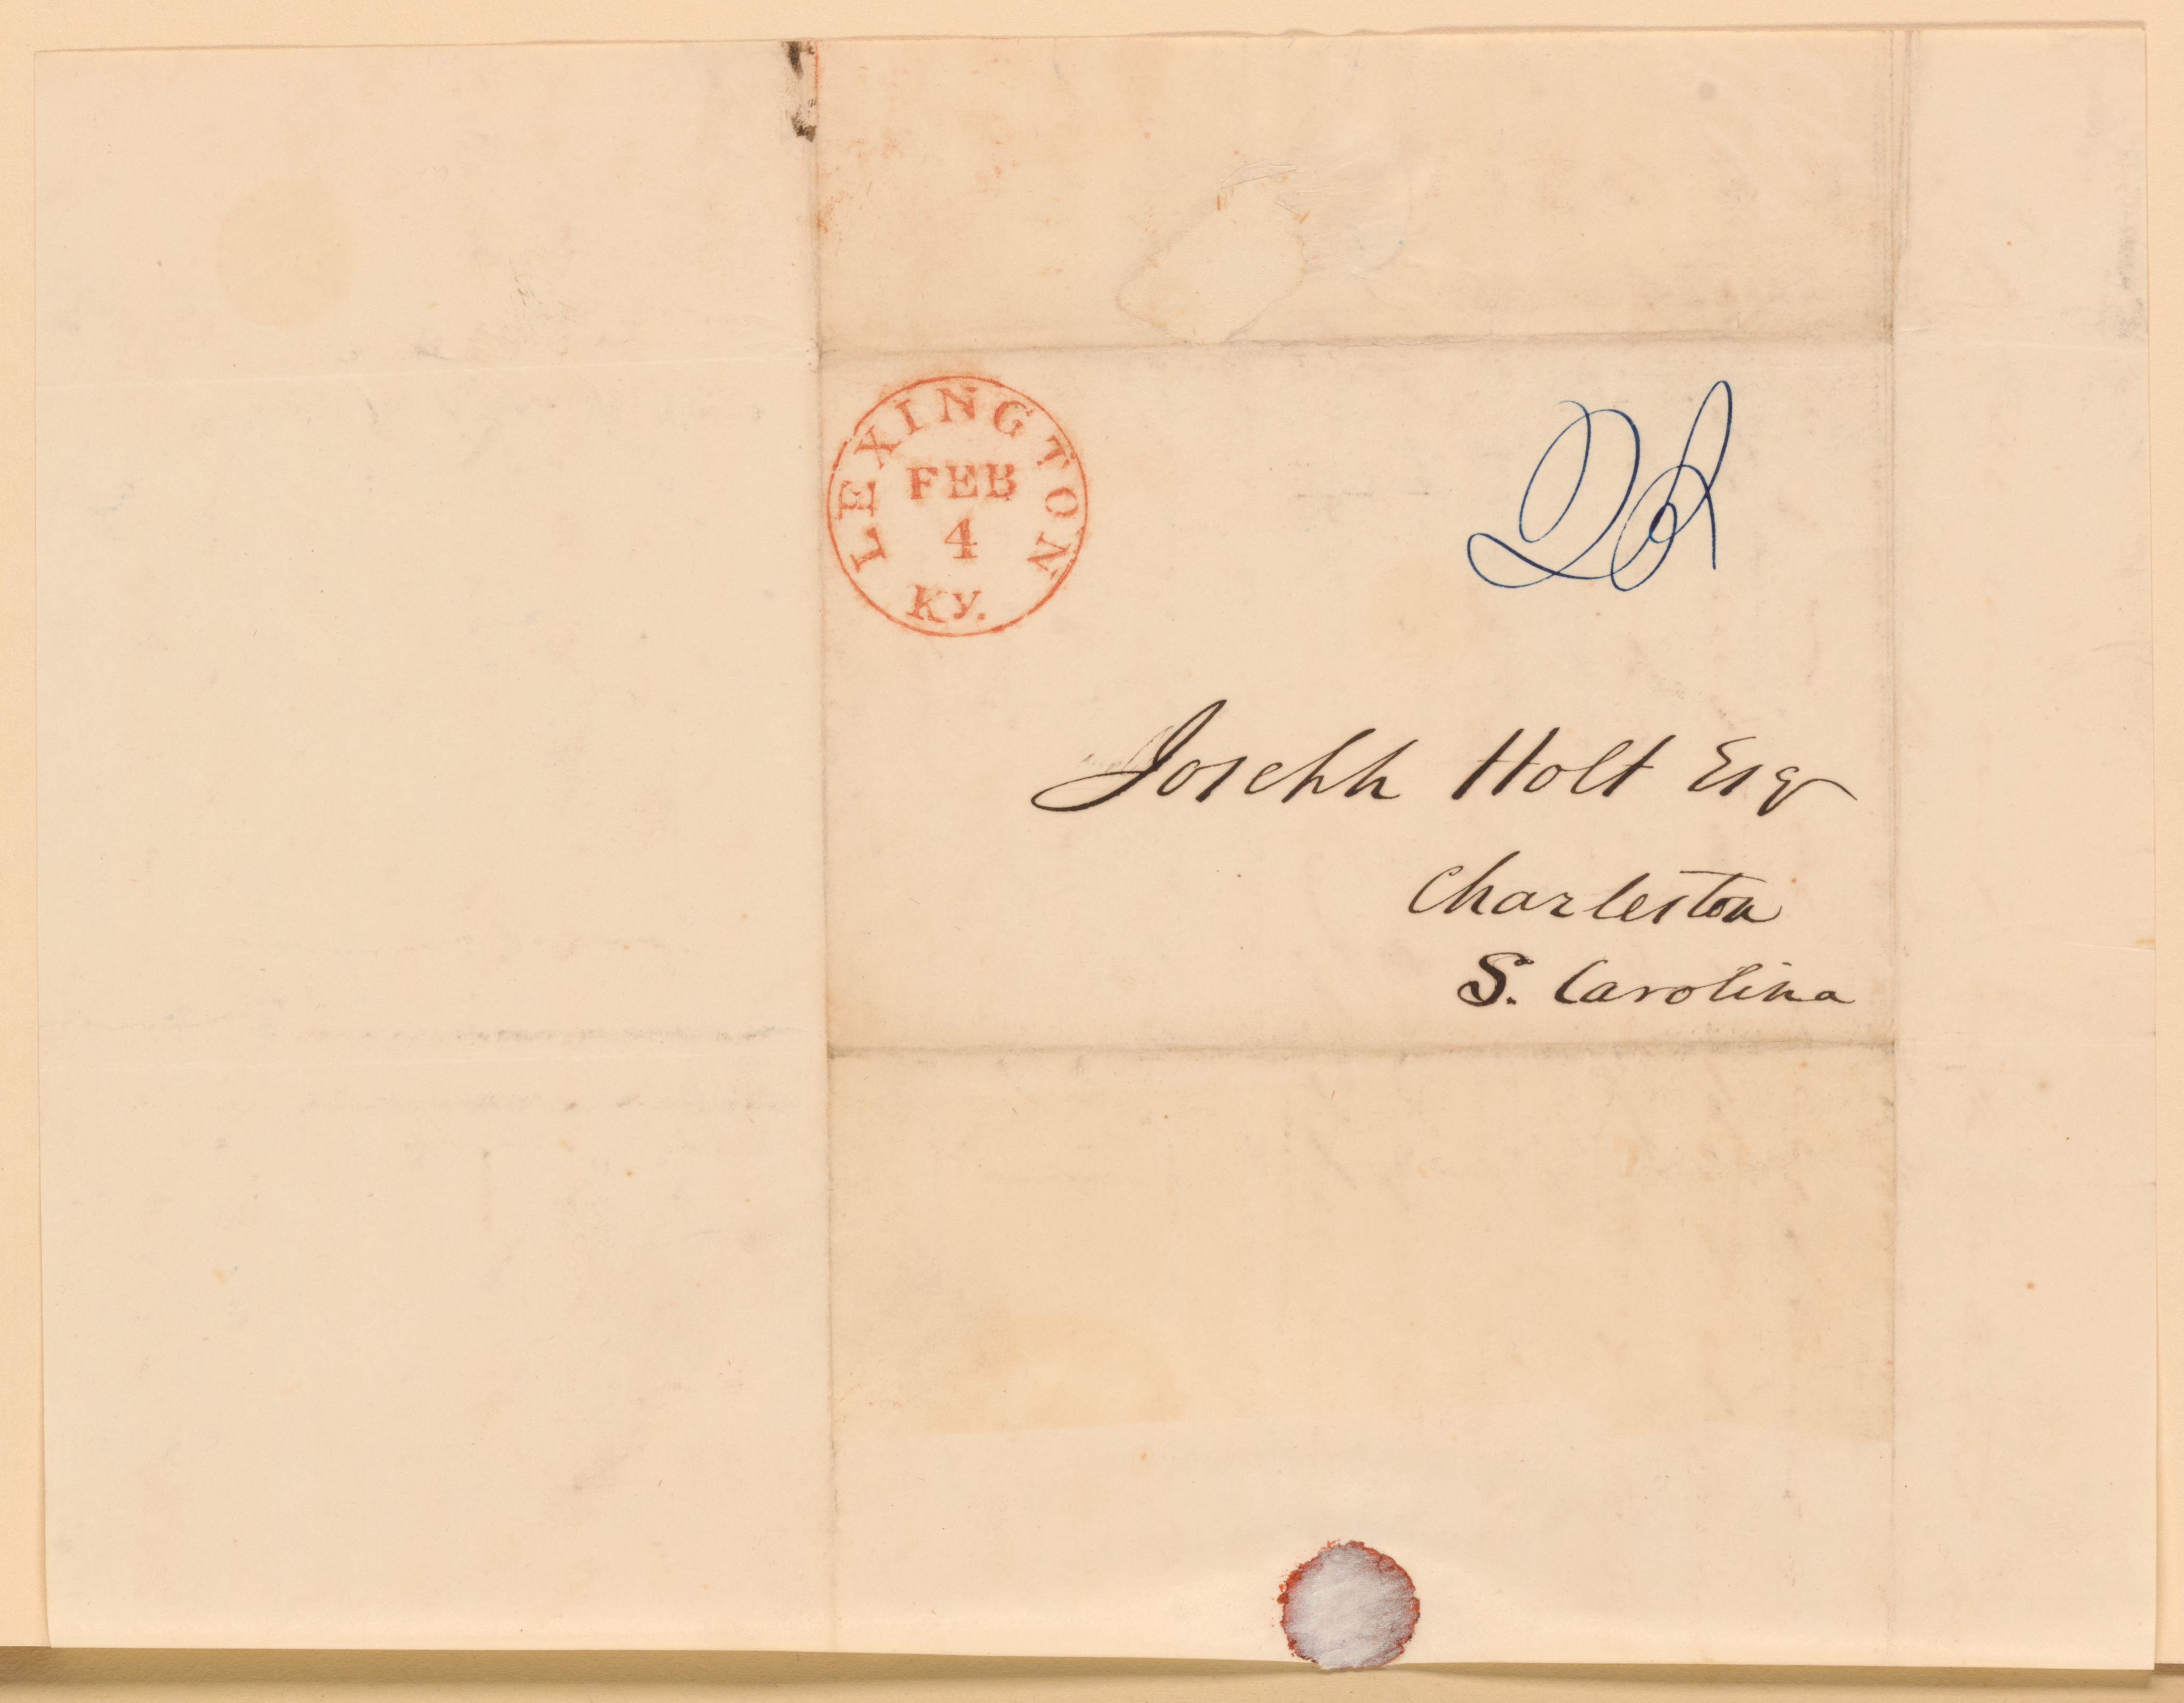 LEXINGTON
FEB
4
KY.
Joseph Holt Esq
Charleston
S. Carolina